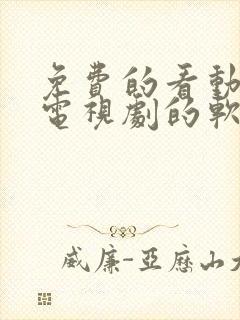 免費的看動
電視劇的軟
威廉-亞歷山大